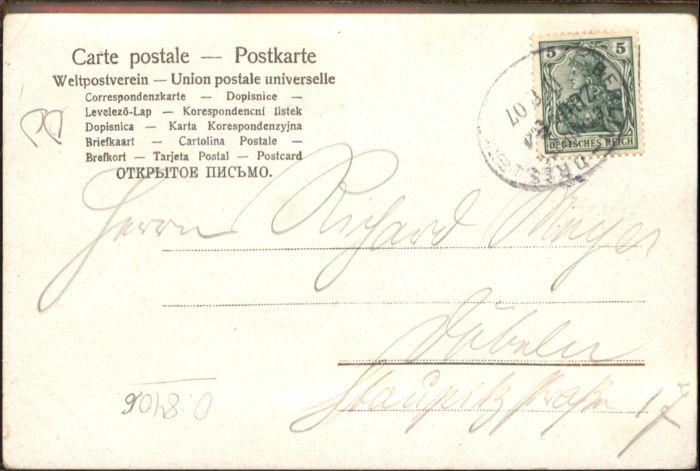 Carte postale — Postkarte
Weltpostverein — Union postale universelle
Correspondenzkarte — Dopisnice —
Levelező-Lap — Korespondencní listek
Dopisnica — Karta Korespondenzyjna
Briefkaart — Cartolina Postale —
Brefkort — Tarjeta Postal — Postcard
ОТКРЫТОЕ ПИСЬМО.
5 5
DEUTSCHES REICH
07
DRESD
Herrn Richard Meyer
Döbeln
Staupitzstraße 17